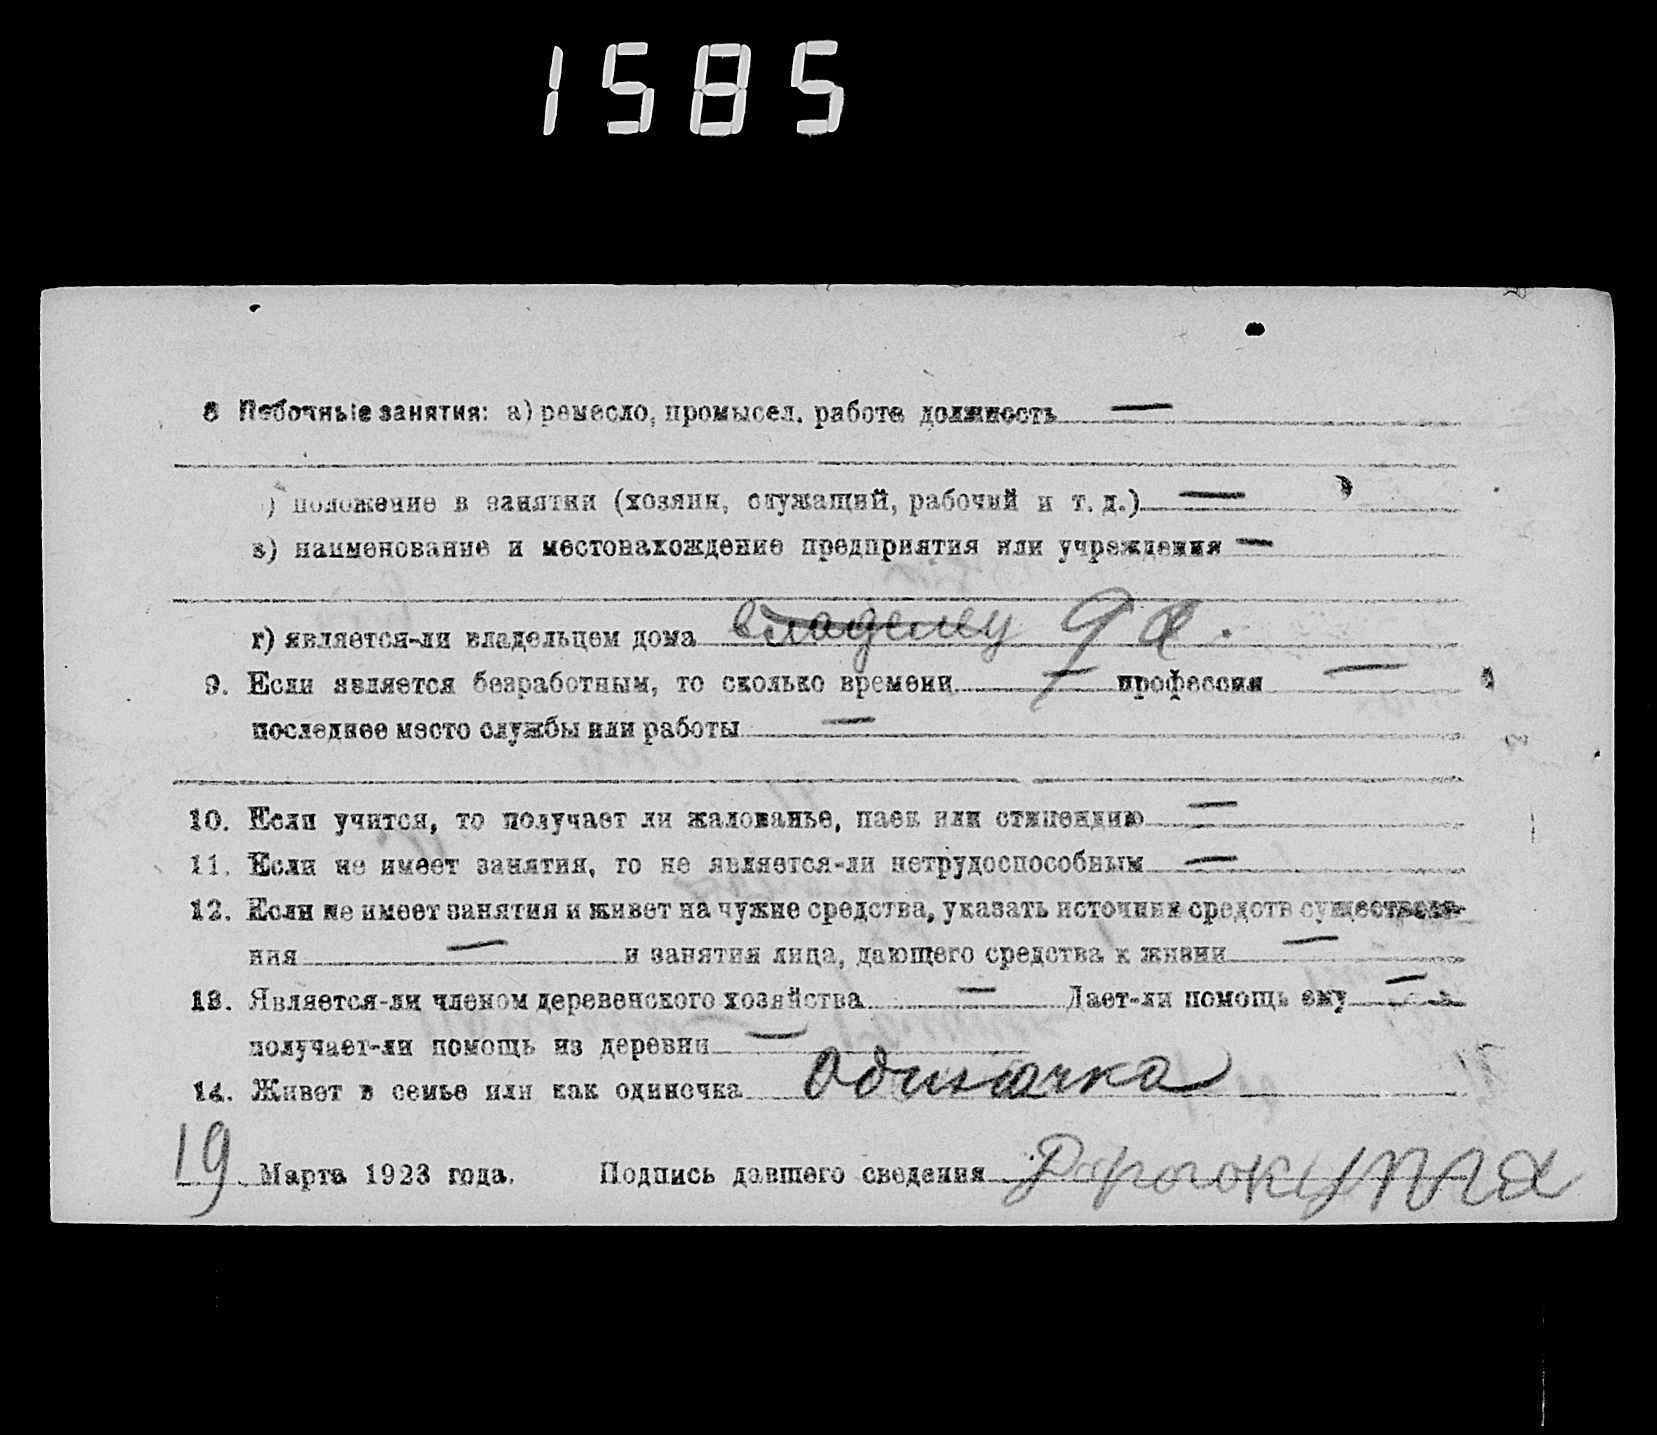 1585
8 Побочные занятия: а) ремесло, промысел, работа должность —
) положение в занятии (хозяин, служащий, рабочий и т. д.) —
в) наименование и местонахождение предприятия или учреждения —
г) является-ли владельцем дома да.
9. Если является безработным, то сколько времени — профессия —
последнее место службы или работы —
10. Если учится, то получает ли жалованье, паек или стипендию —
11. Если не имеет занятия, то не является-ли нетрудоспособным —
12. Если не имеет занятия и живет на чужие средства, указать источник средств существова-
ния — и занятия лица, дающего средства к жизни —
13. Является-ли членом деревенского хозяйства — Дает-ли помощь ему —
получает-ли помощь из деревни —
14. Живет в семье или как одиночка Одиночка
19 Марта 1923 года. Подпись давшего сведения